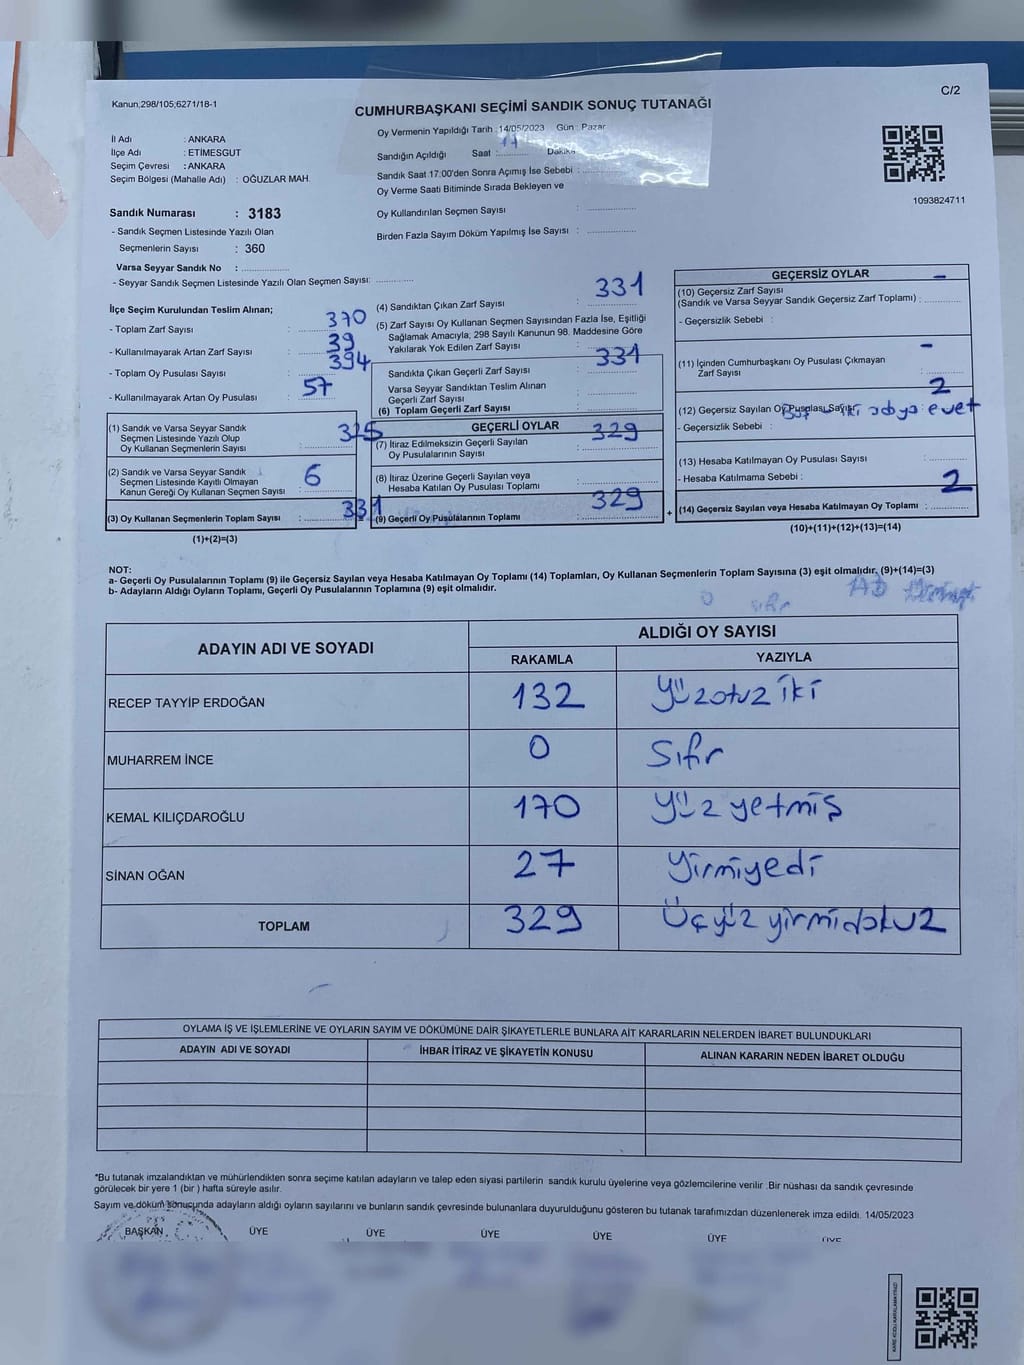 Kanun;298/105;6271/18-1
C/2
CUMHURBAŞKANI SEÇİMİ SANDIK SONUÇ TUTANAĞI
İl Adı : ANKARA
İlçe Adı : ETİMESGUT
Seçim Çevresi : ANKARA
Seçim Bölgesi (Mahalle Adı) : OĞUZLAR MAH.
Oy Vermenin Yapıldığı Tarih : 14/05/2023 Gün : Pazar
Sandığın Açıldığı Saat : 17 Dakika
Sandık Saat 17:00'den Sonra Açımış İse Sebebi :
Oy Verme Saati Bitiminde Sırada Bekleyen ve
Oy Kullandırılan Seçmen Sayısı :
Birden Fazla Sayım Döküm Yapılmış İse Sayısı :
1093824711
Sandık Numarası : 3183
- Sandık Seçmen Listesinde Yazılı Olan
Seçmenlerin Sayısı : 360
Varsa Seyyar Sandık No :
- Seyyar Sandık Seçmen Listesinde Yazılı Olan Seçmen Sayısı:
İlçe Seçim Kurulundan Teslim Alınan;
- Toplam Zarf Sayısı : 370
- Kullanılmayarak Artan Zarf Sayısı : 39
- Toplam Oy Pusulası Sayısı : 394
- Kullanılmayarak Artan Oy Pusulası : 57
(1) Sandık ve Varsa Seyyar Sandık
Seçmen Listesinde Yazılı Olup
Oy Kullanan Seçmenlerin Sayısı : 325
(2) Sandık ve Varsa Seyyar Sandık
Seçmen Listesinde Kayıtlı Olmayan
Kanun Gereği Oy Kullanan Seçmen Sayısı : 6
(3) Oy Kullanan Seçmenlerin Toplam Sayısı : 331
(1)+(2)=(3)
(4) Sandıktan Çıkan Zarf Sayısı : 331
(5) Zarf Sayısı Oy Kullanan Seçmen Sayısından Fazla İse, Eşitliği
Sağlamak Amacıyla, 298 Sayılı Kanunun 98. Maddesine Göre
Yakılarak Yok Edilen Zarf Sayısı :
Sandıkta Çıkan Geçerli Zarf Sayısı : 331
Varsa Seyyar Sandıktan Teslim Alınan
Geçerli Zarf Sayısı :
(6) Toplam Geçerli Zarf Sayısı :
GEÇERLİ OYLAR
(7) İtiraz Edilmeksizin Geçerli Sayılan
Oy Pusulalarının Sayısı : 329
(8) İtiraz Üzerine Geçerli Sayılan veya
Hesaba Katılan Oy Pusulası Toplamı :
(9) Geçerli Oy Pusulalarının Toplamı : 329
+
GEÇERSİZ OYLAR
(10) Geçersiz Zarf Sayısı -
(Sandık ve Varsa Seyyar Sandık Geçersiz Zarf Toplamı) :
- Geçersizlik Sebebi :
(11) İçinden Cumhurbaşkanı Oy Pusulası Çıkmayan
Zarf Sayısı -
(12) Geçersiz Sayılan Oy Pusulası Sayısı : 2
- Geçersizlik Sebebi : iki adaya evet
(13) Hesaba Katılmayan Oy Pusulası Sayısı :
- Hesaba Katılmama Sebebi :
(14) Geçersiz Sayılan veya Hesaba Katılmayan Oy Toplamı : 2
(10)+(11)+(12)+(13)=(14)
NOT:
a- Geçerli Oy Pusulalarının Toplamı (9) ile Geçersiz Sayılan veya Hesaba Katılmayan Oy Toplamı (14) Toplamları, Oy Kullanan Seçmenlerin Toplam Sayısına (3) eşit olmalıdır. (9)+(14)=(3)
b- Adayların Aldığı Oyların Toplamı, Geçerli Oy Pusulalarının Toplamına (9) eşit olmalıdır.
0 sıfır
ADAYIN ADI VE SOYADI
ALDIĞI OY SAYISI
RAKAMLA YAZIYLA
RECEP TAYYİP ERDOĞAN 132 Yüzotuz iki
MUHARREM İNCE 0 Sıfır
KEMAL KILIÇDAROĞLU 170 Yüz yetmiş
SİNAN OĞAN 27 Yirmiyedi
TOPLAM 329 Üçyüz yirmidokuz
OYLAMA İŞ VE İŞLEMLERİNE VE OYLARIN SAYIM VE DÖKÜMÜNE DAİR ŞİKAYETLERLE BUNLARA AİT KARARLARIN NELERDEN İBARET BULUNDUKLARI
ADAYIN ADI VE SOYADI İHBAR İTİRAZ VE ŞİKAYETİN KONUSU ALINAN KARARIN NEDEN İBARET OLDUĞU
*Bu tutanak imzalandıktan ve mühürlendikten sonra seçime katılan adayların ve talep eden siyasi partilerin sandık kurulu üyelerine veya gözlemcilerine verilir .Bir nüshası da sandık çevresinde
görülecek bir yere 1 (bir ) hafta süreyle asılır.
Sayım ve döküm sonucunda adayların aldığı oyların sayılarını ve bunların sandık çevresinde bulunanlara duyurulduğunu gösteren bu tutanak tarafımızdan düzenlenerek imza edildi. 14/05/2023
BAŞKAN ÜYE ÜYE ÜYE ÜYE ÜYE ÜYE